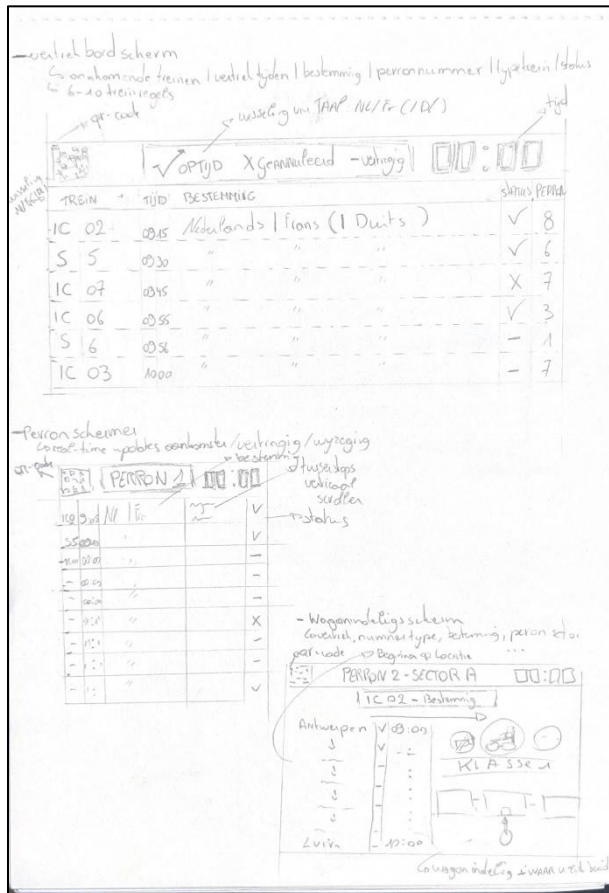 - vertrek bord scherm
↳ aankomende treinen / vertrek tijden / bestemming / perronnummer / type trein / status
↳ 6-10 treinregels
qr-code
wisseling van TAAL NL/Fr (/D/)
tijd
✓ OPTIJD X GEANNULEERD - vertragig
TREIN TIJD BESTEMMING STATUS PERRON
IC 02 0915 Nederlands | Frans (| Duits) ✓ 8
S 5 0930 " " " ✓ 6
IC 07 0945 " " " X 7
IC 06 0955 " " " ✓ 3
S 6 0956 " " " - 1
IC 03 1000 " " " - 7
- Perron schermen
↳ real-time updates aankomsten/vertragig/wyzeging
qr-code
bestemmig
PERRON 1 00:00
tussenstops
verticaal
scrollen
NL | Fr ✓
status
✓
-
-
-
X
-
-
✓
- Wagonindeligsscherm
type, bestemmig, perron
qr-code
PERRON 2 - SECTOR A 00:00
IC 02 - Bestemmig
Antwerpen ✓ 09:00
✓
KLASSE 1
- 10:00
↳ wagon indelig + WAAR U ZICH